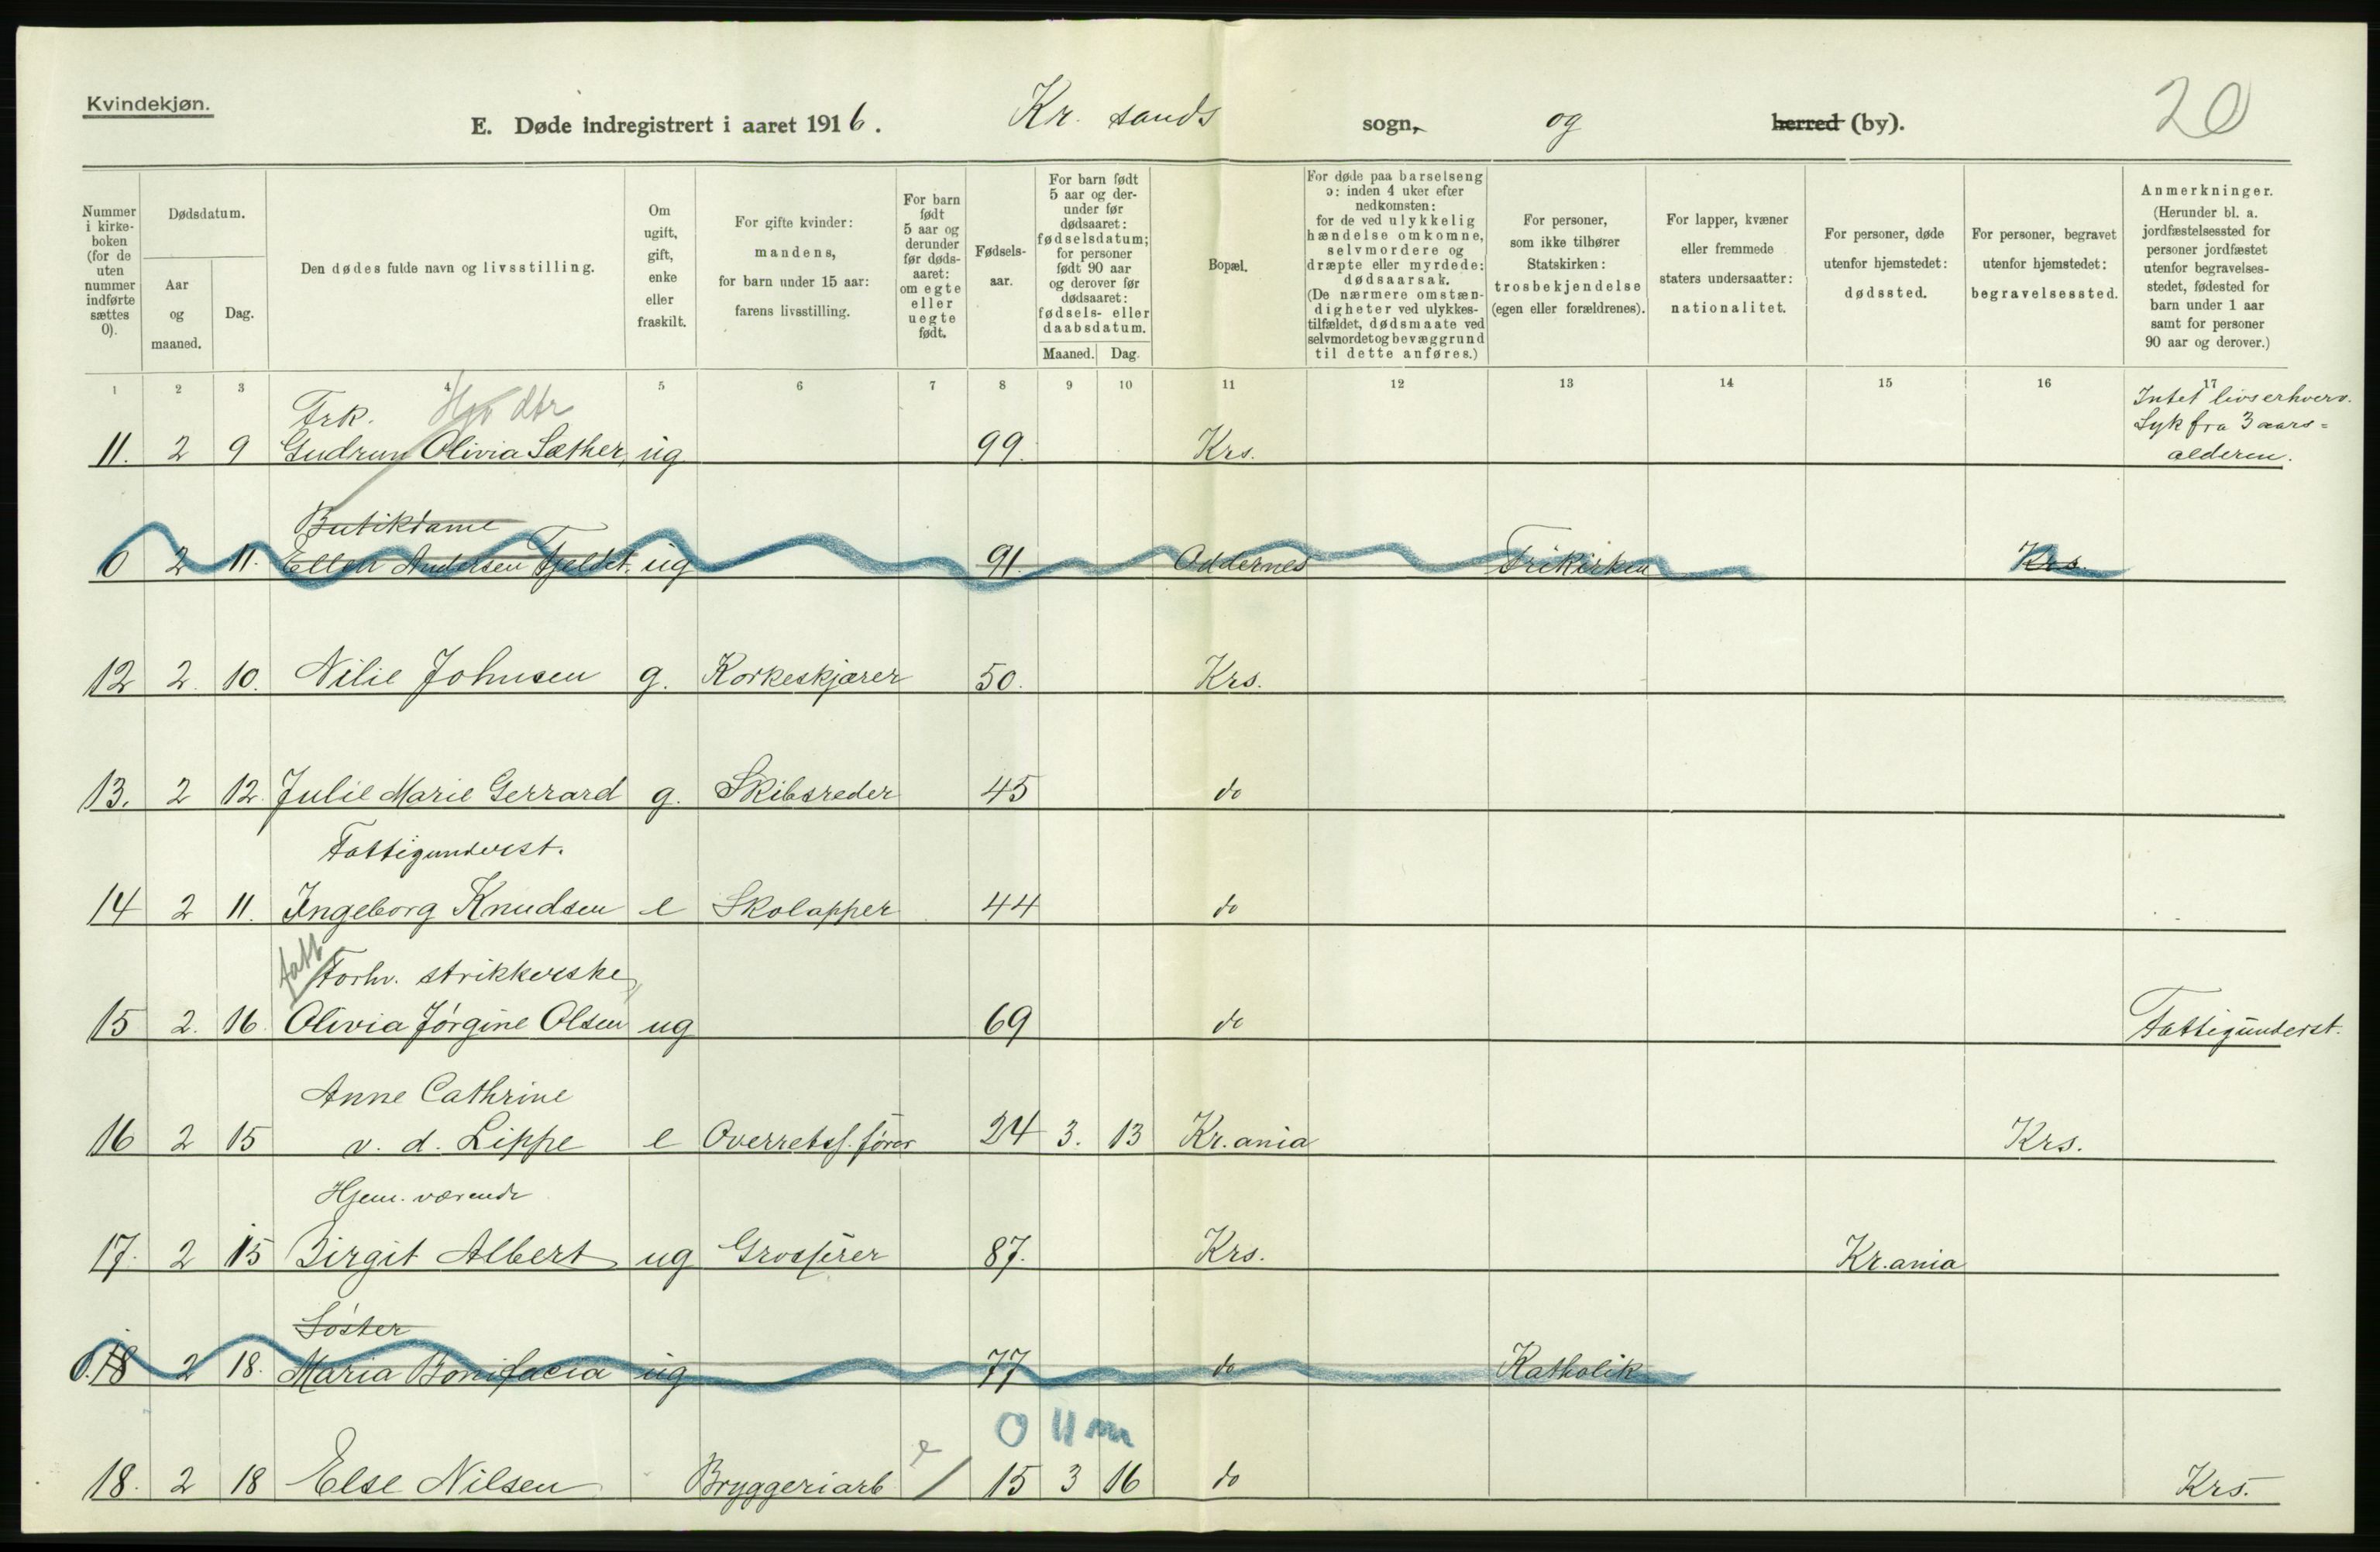 Kvindekjøn.
E. Døde indregistrert i aaret 1916. Kr. sands sogn, og herred (by). 20
Nummer i kirke-boken (for de uten nummer indførte sættes 0).
Dødsdatum.
Aar og maaned.
Dag.
Den dødes fulde navn og livsstilling.
Om ugift, gift, enke eller fraskilt.
For gifte kvinder: mandens, for barn under 15 aar: farens livsstilling.
For barn født 5 aar og derunder før døds-aaret: om egte eller uegte født.
Fødsels-aar.
For barn født 5 aar og der-under før dødsaaret: fødselsdatum; for personer født 90 aar og derover før dødsaaret: fødsels- eller daabsdatum.
Maaned. Dag.
Bopæl.
For døde paa barselseng ɔ: inden 4 uker efter nedkomsten: for de ved ulykkelig hændelse omkomne, selvmordere og dræpte eller myrdede: dødsaarsak. (De nærmere omstæn-digheter ved ulykkes-tilfældet, dødsmaate ved selvmordet og bevæggrund til dette anføres.)
For personer, som ikke tilhører Statskirken: trosbekjendelse (egen eller forældrenes).
For lapper, kvæner eller fremmede staters undersaatter: nationalitet.
For personer, døde utenfor hjemstedet: dødssted.
For personer, begravet utenfor hjemstedet: begravelsessted.
Anmerkninger. (Herunder bl. a. jordfæstelsessted for personer jordfæstet utenfor begravelses-stedet, fødested for barn under 1 aar samt for personer 90 aar og derover.)
1 2 3 4 5 6 7 8 9 10 11 12 13 14 15 16 17
Frk. dtr Intet livserhverv.
Syk fra 3 aars=
11. 2 9 Gudrun Olivia Sæther, ug 99. Krs. alderen.
Butikdame
0 2 11. Ellen Andersen Fjeldet. ug 91. Oddernes Frikirken Krs.
12 2. 10. Nilie Johnsen g. Korkeskjærer 50. Krs.
13. 2 12. Julie Marie Gerrard g. Skibsreder 45 do
Fattigunderst.
14 2 11. Ingeborg Knudsen e Skolapper 44 do
fatt Forhv. strikkerske,
15 2. 16. Olivia Jørgine Olsen ug 69 do Fattigunderst.
Anne Cathrine
16 2 15 v. d. Lippe e Overretss.fører 24 3. 13 Kr.ania Krs.
Hjem. værende
17. 2 15 Birgit Albert ug Grosserer 87. Krs. Kr.ania
Søster
0. 18 2 18. Maria Bonifacia ug 77 do Katholik
0 11 m
18. 2 18 Else Nilsen Bryggeriarb e / 15 3 16 do Krs.